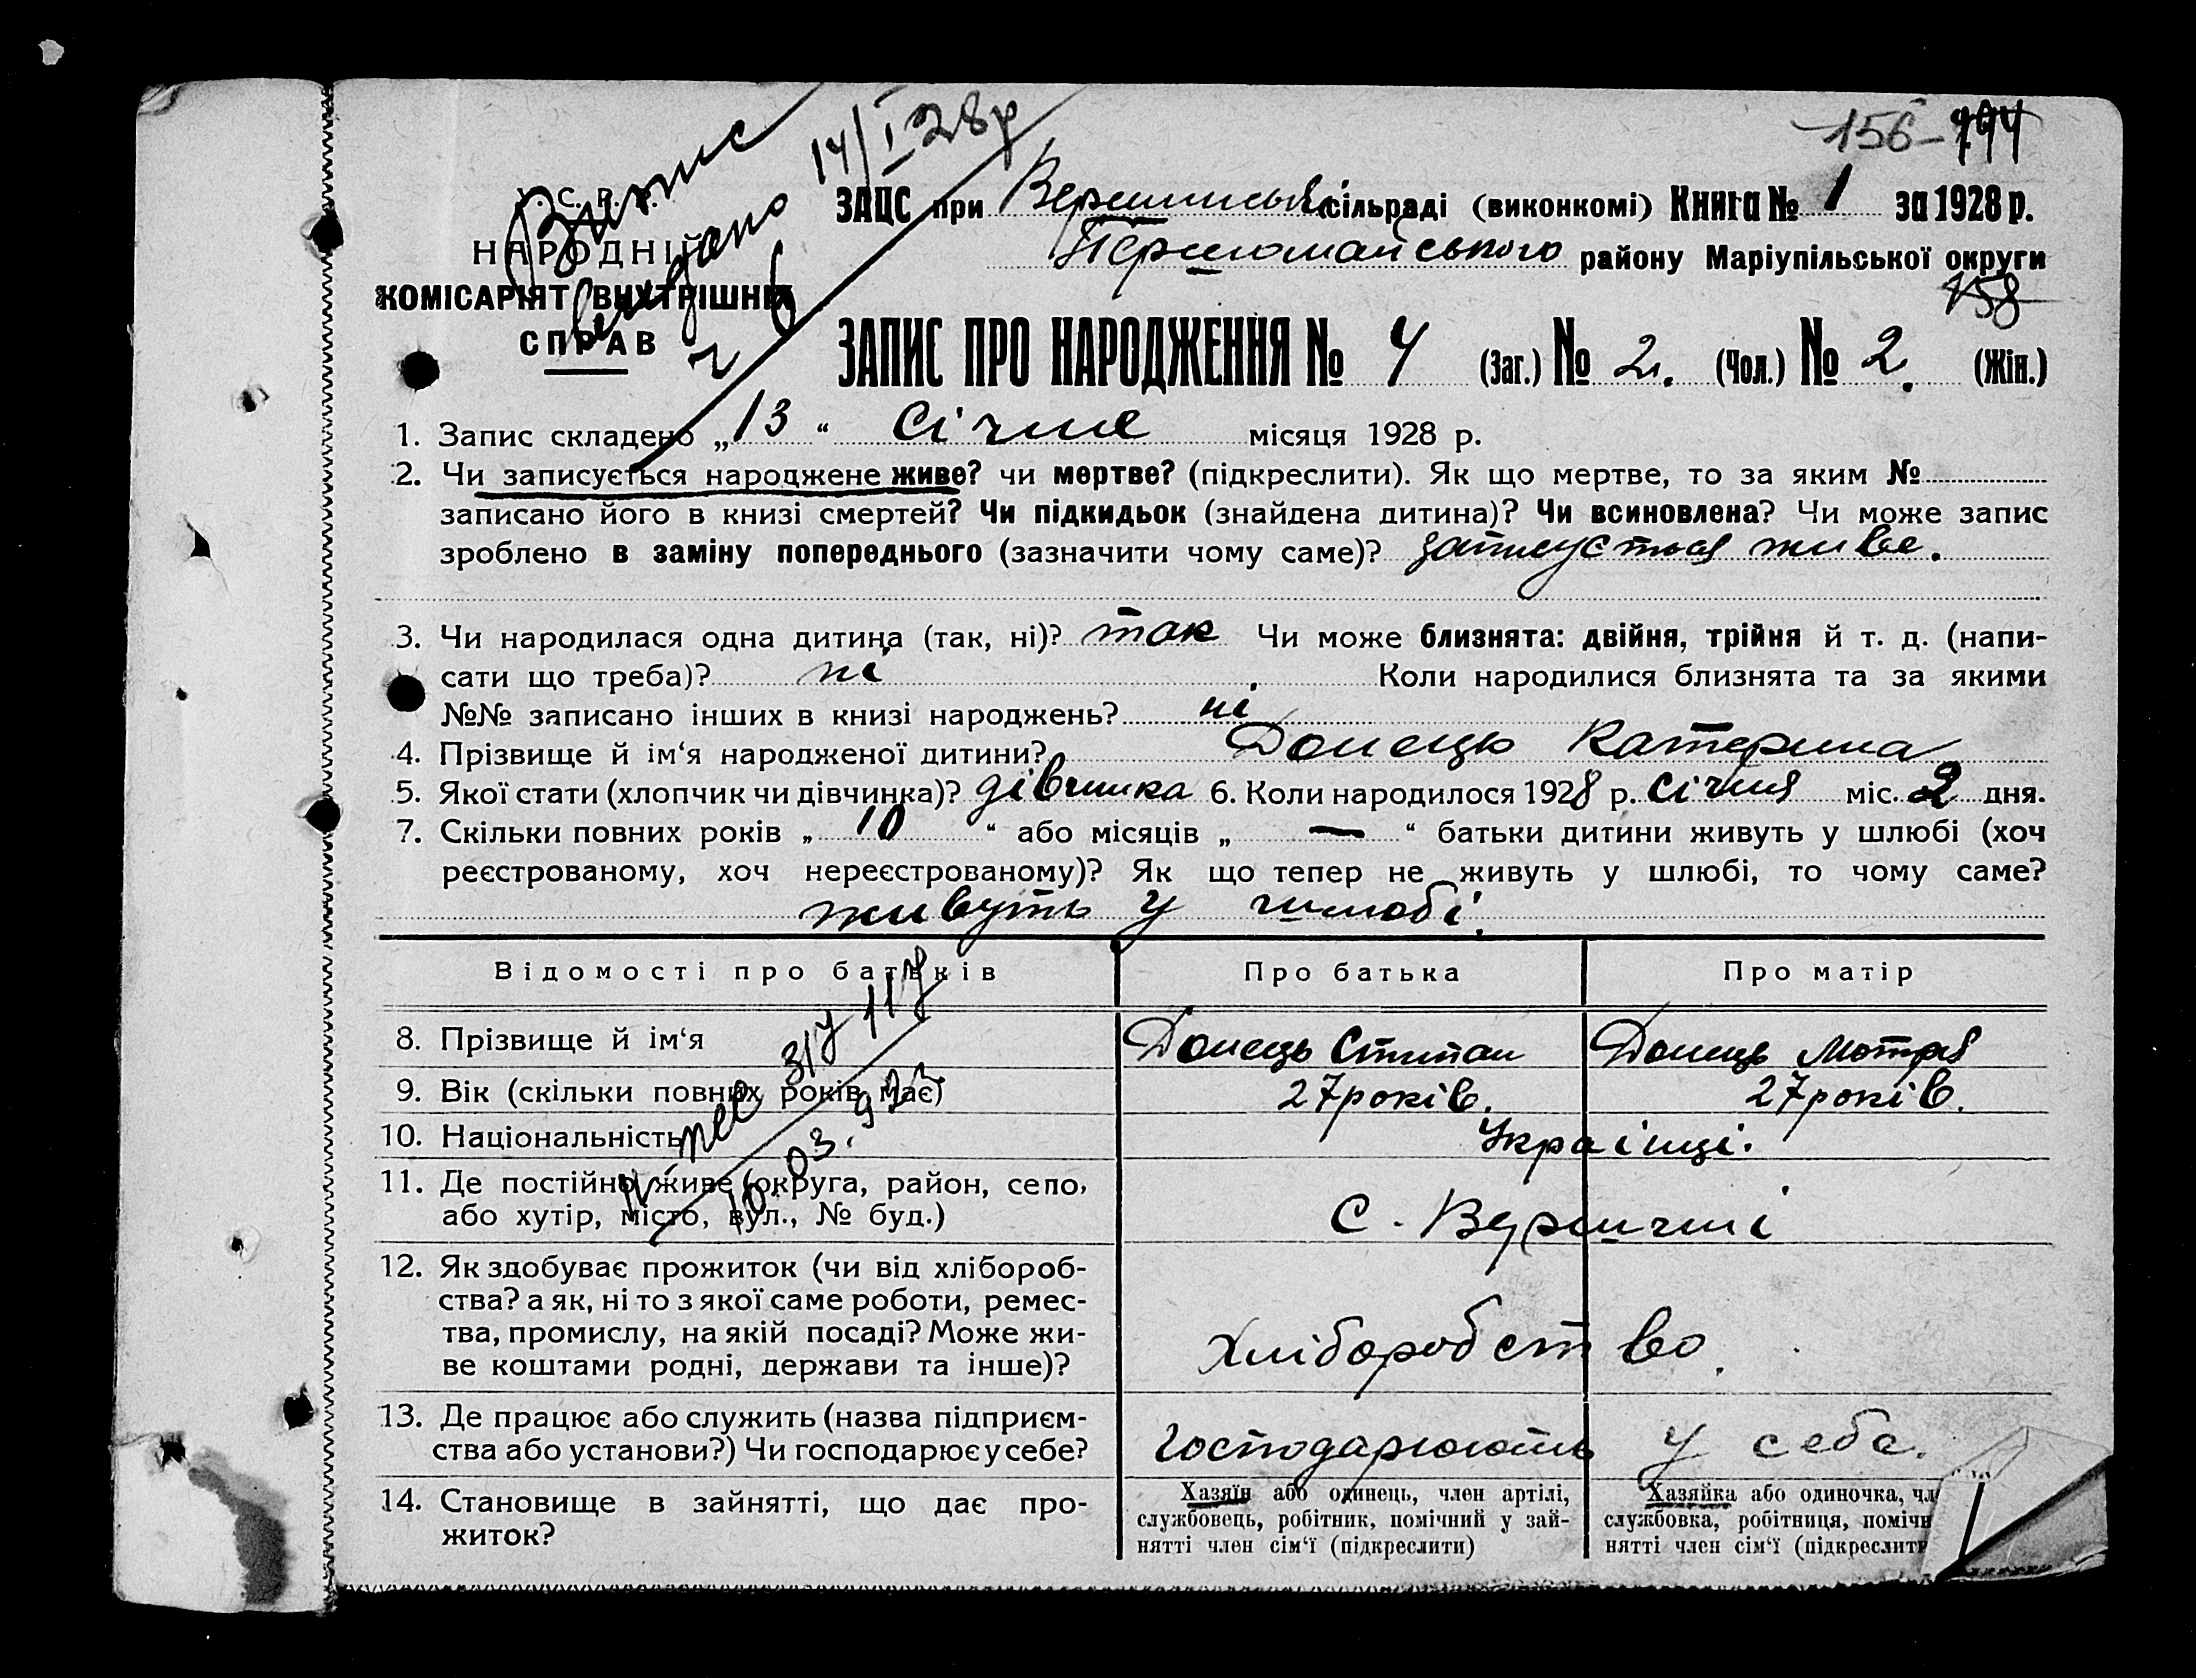 156
Витяг
видано 14/I 28р
У. С. Р. Р.
НАРОДНІЙ
КОМІСАРІЯТ ВНУТРІШНІХ
СПРАВ
ЗАЦС при сільраді (виконкомі) Книга № 1 за 1928 р.
Першомайського району Маріупільської округи
158
ЗАПИС ПРО НАРОДЖЕННЯ № 4 (Заг.) № 2. (Чол.) № 2. (Жін.)
1. Запис складено „13“ Січня місяця 1928 р.
2. Чи записується народжене живе? чи мертве? (підкреслити). Як що мертве, то за яким №
записано його в книзі смертей? Чи підкидьок (знайдена дитина)? Чи всиновлена? Чи може запис
зроблено в заміну попереднього (зазначити чому саме)? записується живе.
3. Чи народилася одна дитина (так, ні)? так Чи може близнята: двійня, трійня й т. д. (напи-
сати що треба)? ні Коли народилися близнята та за якими
№№ записано інших в книзі народжень? ні
4. Прізвище й ім‘я народженої дитини? Донець Катерина
5. Якої стати (хлопчик чи дівчинка)? дівчинка 6. Коли народилось 1928 р. січня міс. 2 дня.
7. Скільки повних років „ 10 “ або місяців „ — “ батьки дитини живуть у шлюбі (хоч
реєстрованому, хоч нереєстрованому)? Як що тепер не живуть у шлюбі, то чому саме?
живуть у шлюбі.
Відомості про батьків Про батька Про матір
8. Прізвище й ім‘я Донець Степан Донець Мотря
9. Вік (скільки повних років має) 27 років. 27 років.
10. Національність Українці.
11. Де постійно живе (округа, район, село,
або хутір, місто, вул., № буд.) С. Вершині
12. Як здобуває прожиток (чи від хлібороб-
ства? а як, ні то з якої саме роботи, ремес-
тва, промислу, на якій посаді? Може жи-
ве коштами родні, держави та інше)? Хліборобство.
13. Де працює або служить (назва підприєм-
ства або установи?) Чи господарює у себе? Господарюють у себе.
14. Становище в зайнятті, що дає про-
житок?
Хазяїн або одинець, член артілі,
службовець, робітник, помічний у зай-
нятті член сім‘ї (підкреслити)
Хазяйка або одиночка, чл
службовка, робітниця, помічн
нятті член сім‘ї (підкреслит